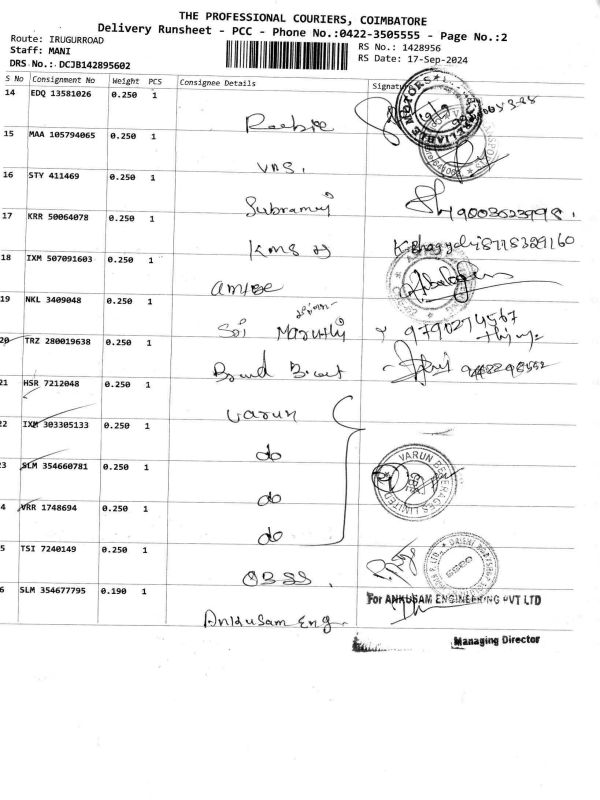 THE PROFESSIONAL COURIERS, COIMBATORE
Delivery Runsheet - PCC - Phone No.:0422-3505555 - Page No.:2
Route: IRUGURROAD
Staff: MANI
RS No.: 1428956
DRS No.: DCJB142895602
RS Date: 17-Sep-2024
S No Consignment No Weight PCS Consignee Details Signatu
14 EDQ 13581026 0.250 1
RELIABLE MOTORS
15 MAA 105794065 0.250 1
VNS.
16 STY 411469 0.250 1
Subramani 9003623998.
17 KRR 50064078 0.250 1
KMS 8778329160
18 IXM 507091603 0.250 1
19 NKL 3409048 0.250 1
Sri Maruthi 9790274567
20 TRZ 280019638 0.250 1
Brand
21 HSR 7212048 0.250 1
Varun
22 IXM 303305133 0.250 1
do
23 SLM 354660781 0.250 1
do
VARUN BEVERAGES LIMITED
24 VRR 1748694 0.250 1
do
5 TSI 7240149 0.250 1
OBSS.
6 SLM 354677795 0.190 1
For ANKUSAM ENGINEERING PVT LTD
Ankusam Eng.
Managing Director